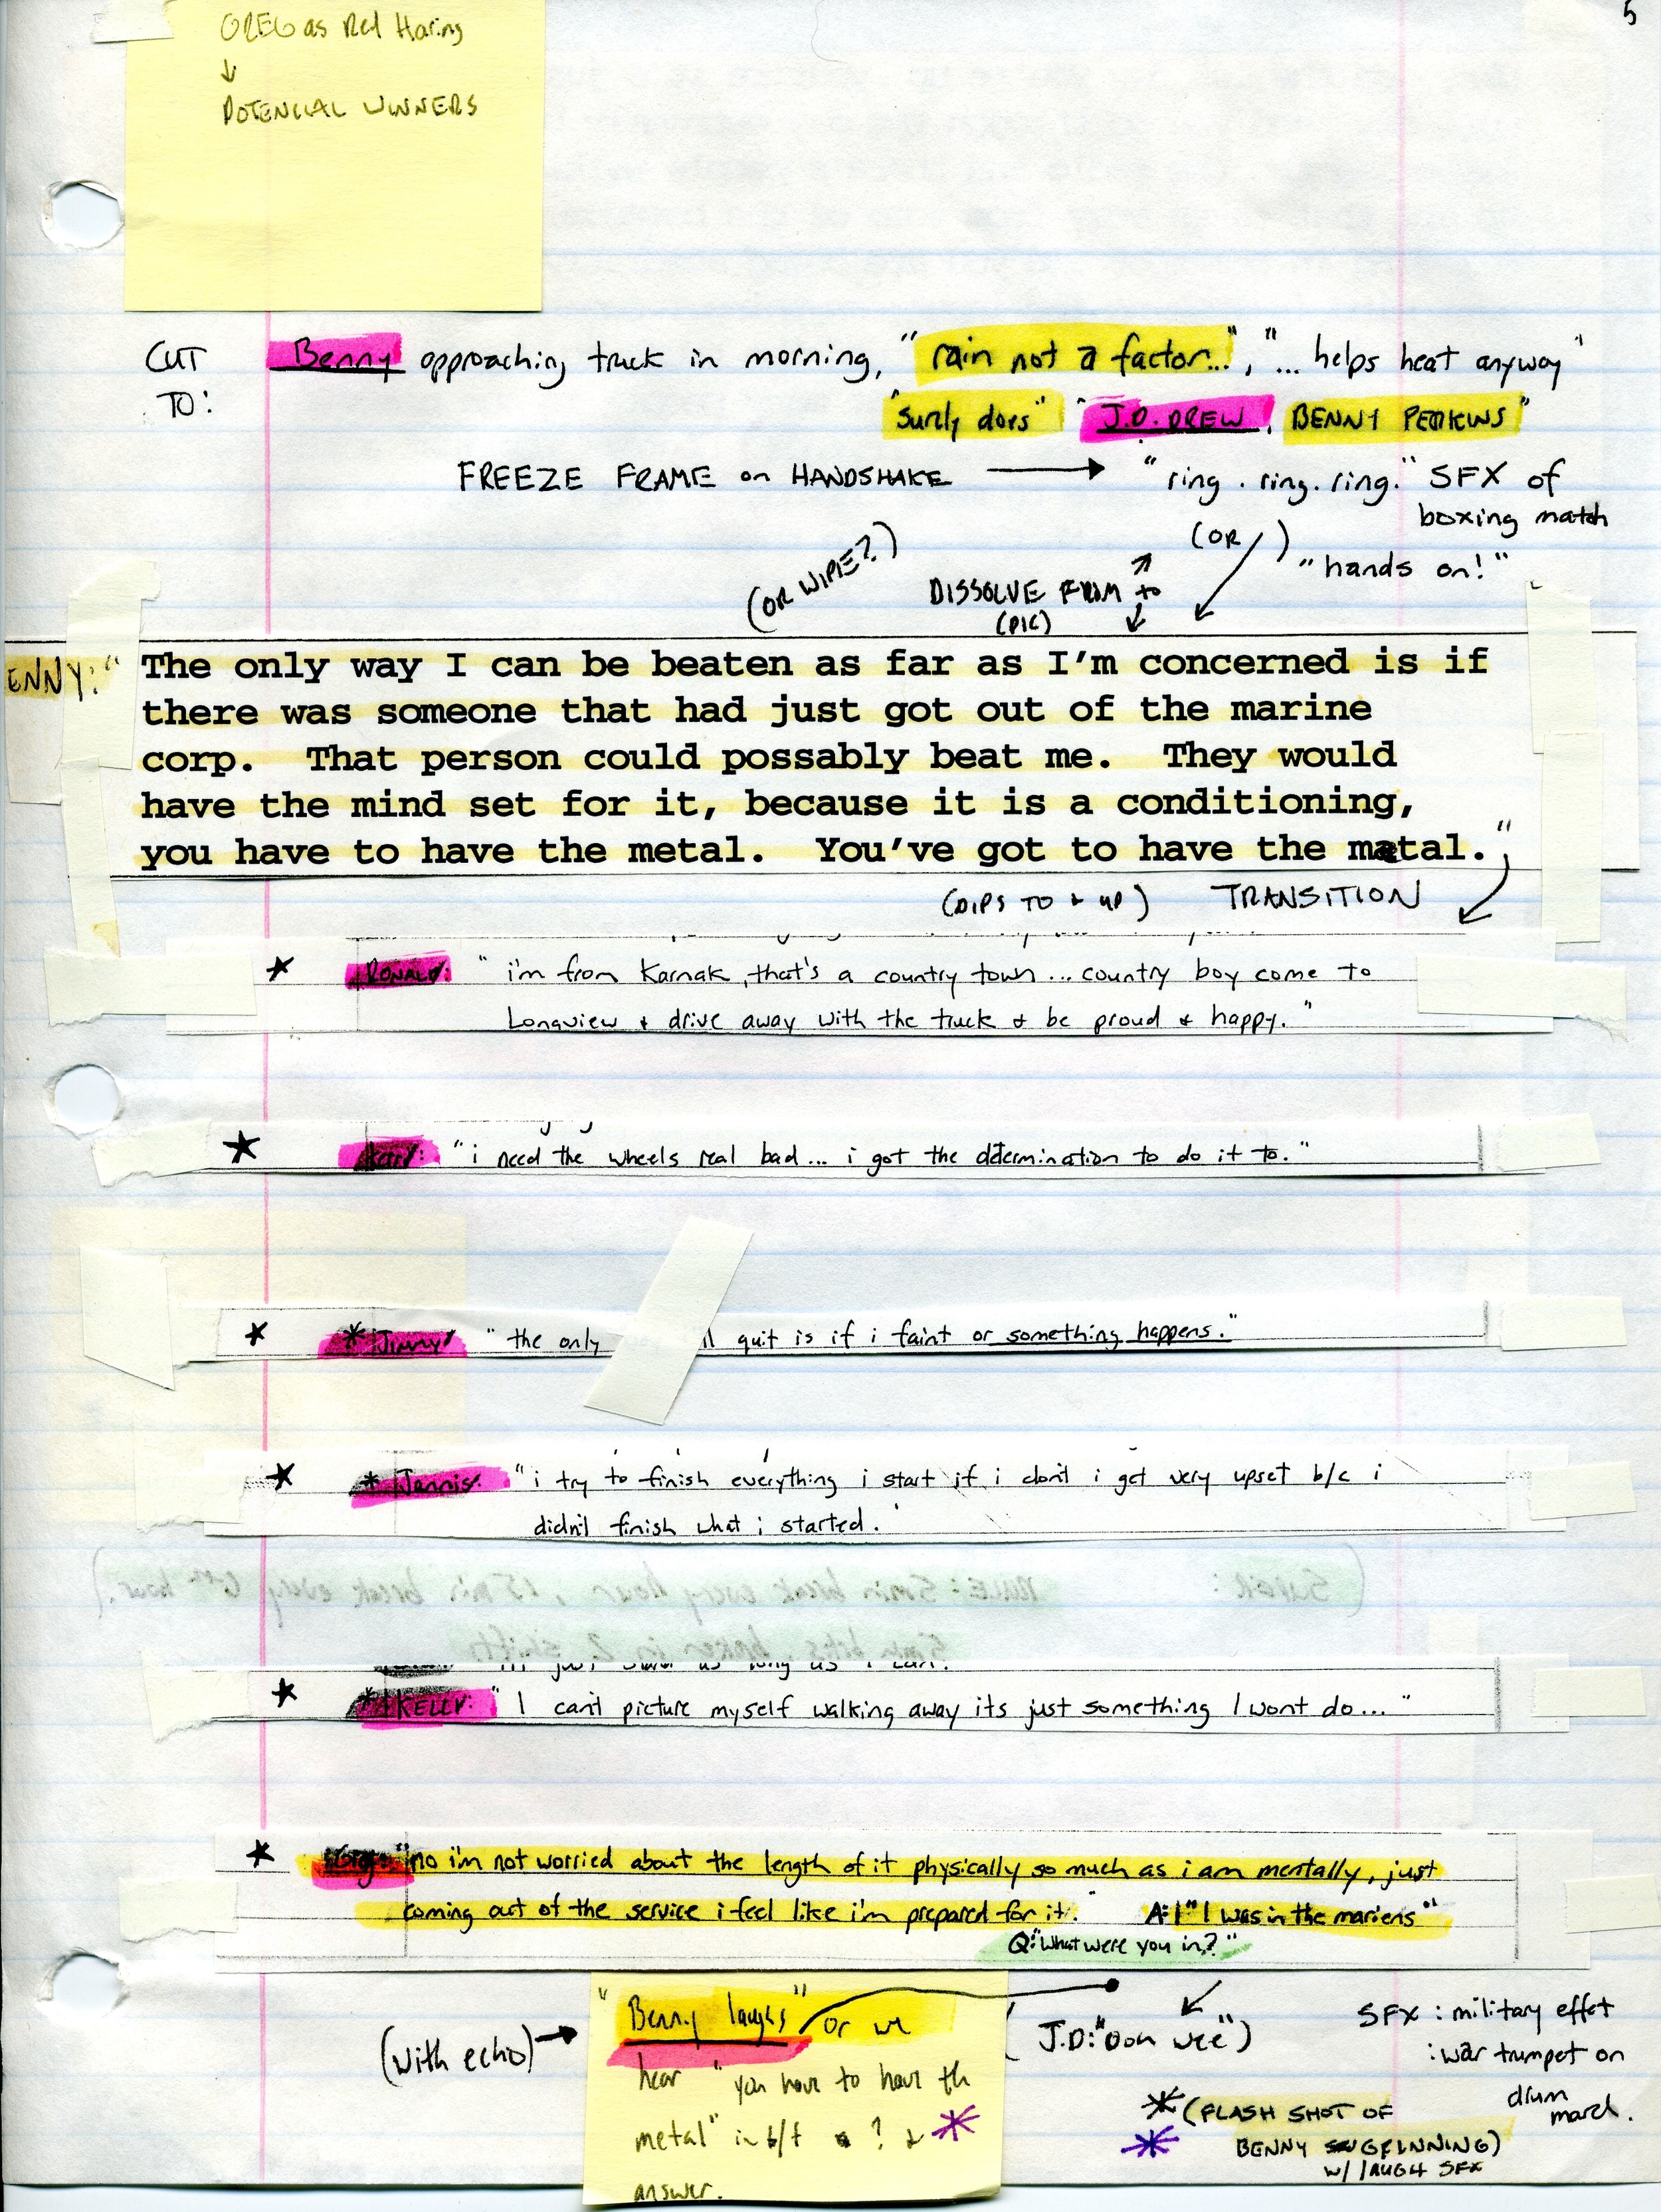 5
GREG as Red Haring
↓
POTENCIAL WINNERS
CUT TO: Benny approaching truck in morning, "rain not a factor...", "... helps heat anyway"
"surely does" "J.D. DREW, BENNY PERKINS"
FREEZE FRAME on HANDSHAKE → "ring. ring. ring." SFX of boxing match
(OR WIPE?) DISSOLVE FROM ↗ to ↓ (PIC) (OR ↙) "hands on!"
ENNY: "The only way I can be beaten as far as I'm concerned is if
there was someone that had just got out of the marine
corp. That person could possably beat me. They would
have the mind set for it, because it is a conditioning,
you have to have the metal. You've got to have the metal."
(DIPS TO & UP) TRANSITION
* RONALD: "i'm from Karnak, that's a country town... country boy come to
Longview & drive away with the truck & be proud & happy."
* "i need the wheels real bad... i got the determination to do it to."
* * "the only quit is if i faint or something happens."
* * Jannis: "i try to finish everything i start if i don't i get very upset b/c i
didn't finish what i started.
(SUPER: RULE: 5 min break every hour, 15 min break every 6th hour.)
* * KELLY: "I can't picture myself walking away its just something I wont do..."
* Greg: "no i'm not worried about the length of it physically so much as i am mentally, just
coming out of the service i feel like i'm prepared for it." A: "I was in the mariens"
Q: "What were you in?"
(with echo) → "Benny laughs" or we
hear "you have to have th
metal" in b/t ? & *
answer.
(J.D: "Ooh wee")
SFX : military effet
: war trumpet on
drum march.
* (FLASH SHOT OF
* BENNY GRINNING)
w/ laugh SFX